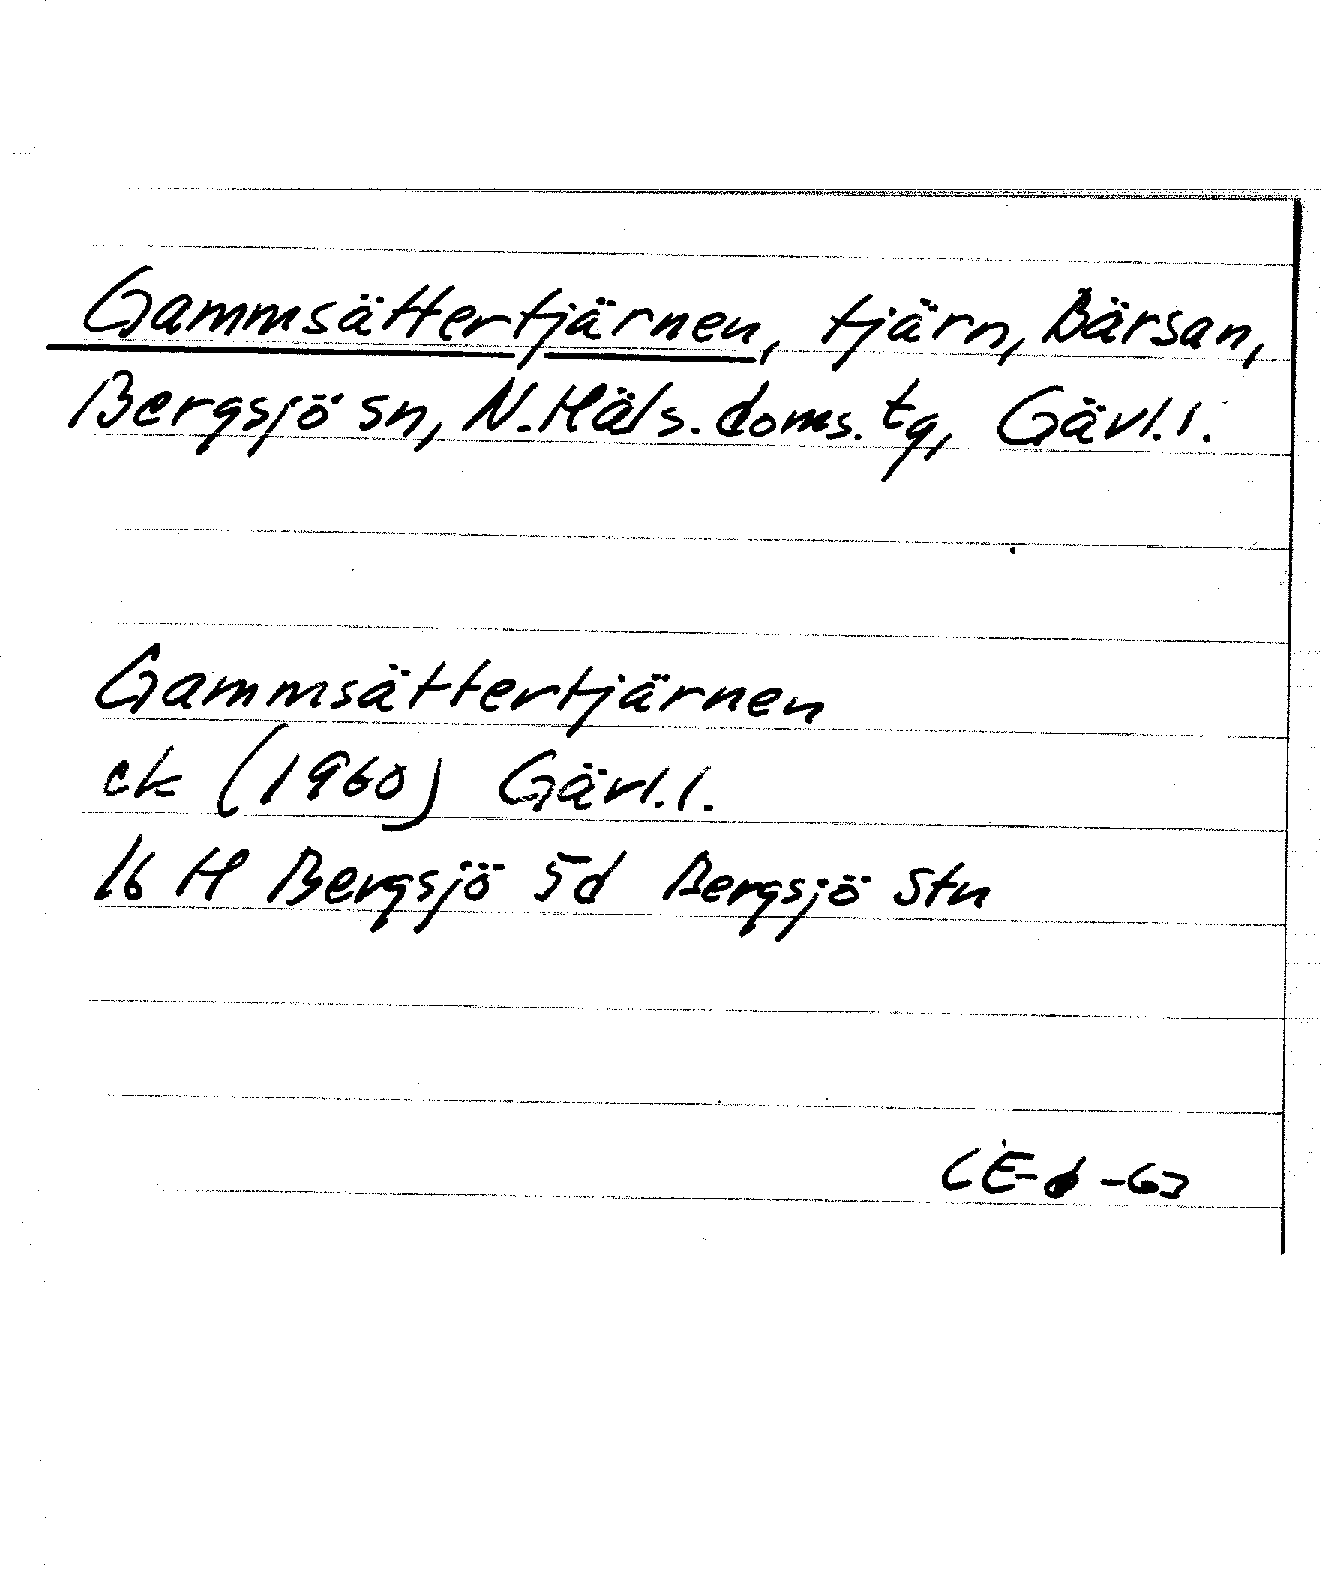 Gammsättertjärnen, tjärn, Bärsan,
Bergsjö sn, N.Häls.doms.tg, Gävl.l.
Gammsättertjärnen
ek (1960) Gävl.l.
16 H Bergsjö 5d Bergsjö Stn